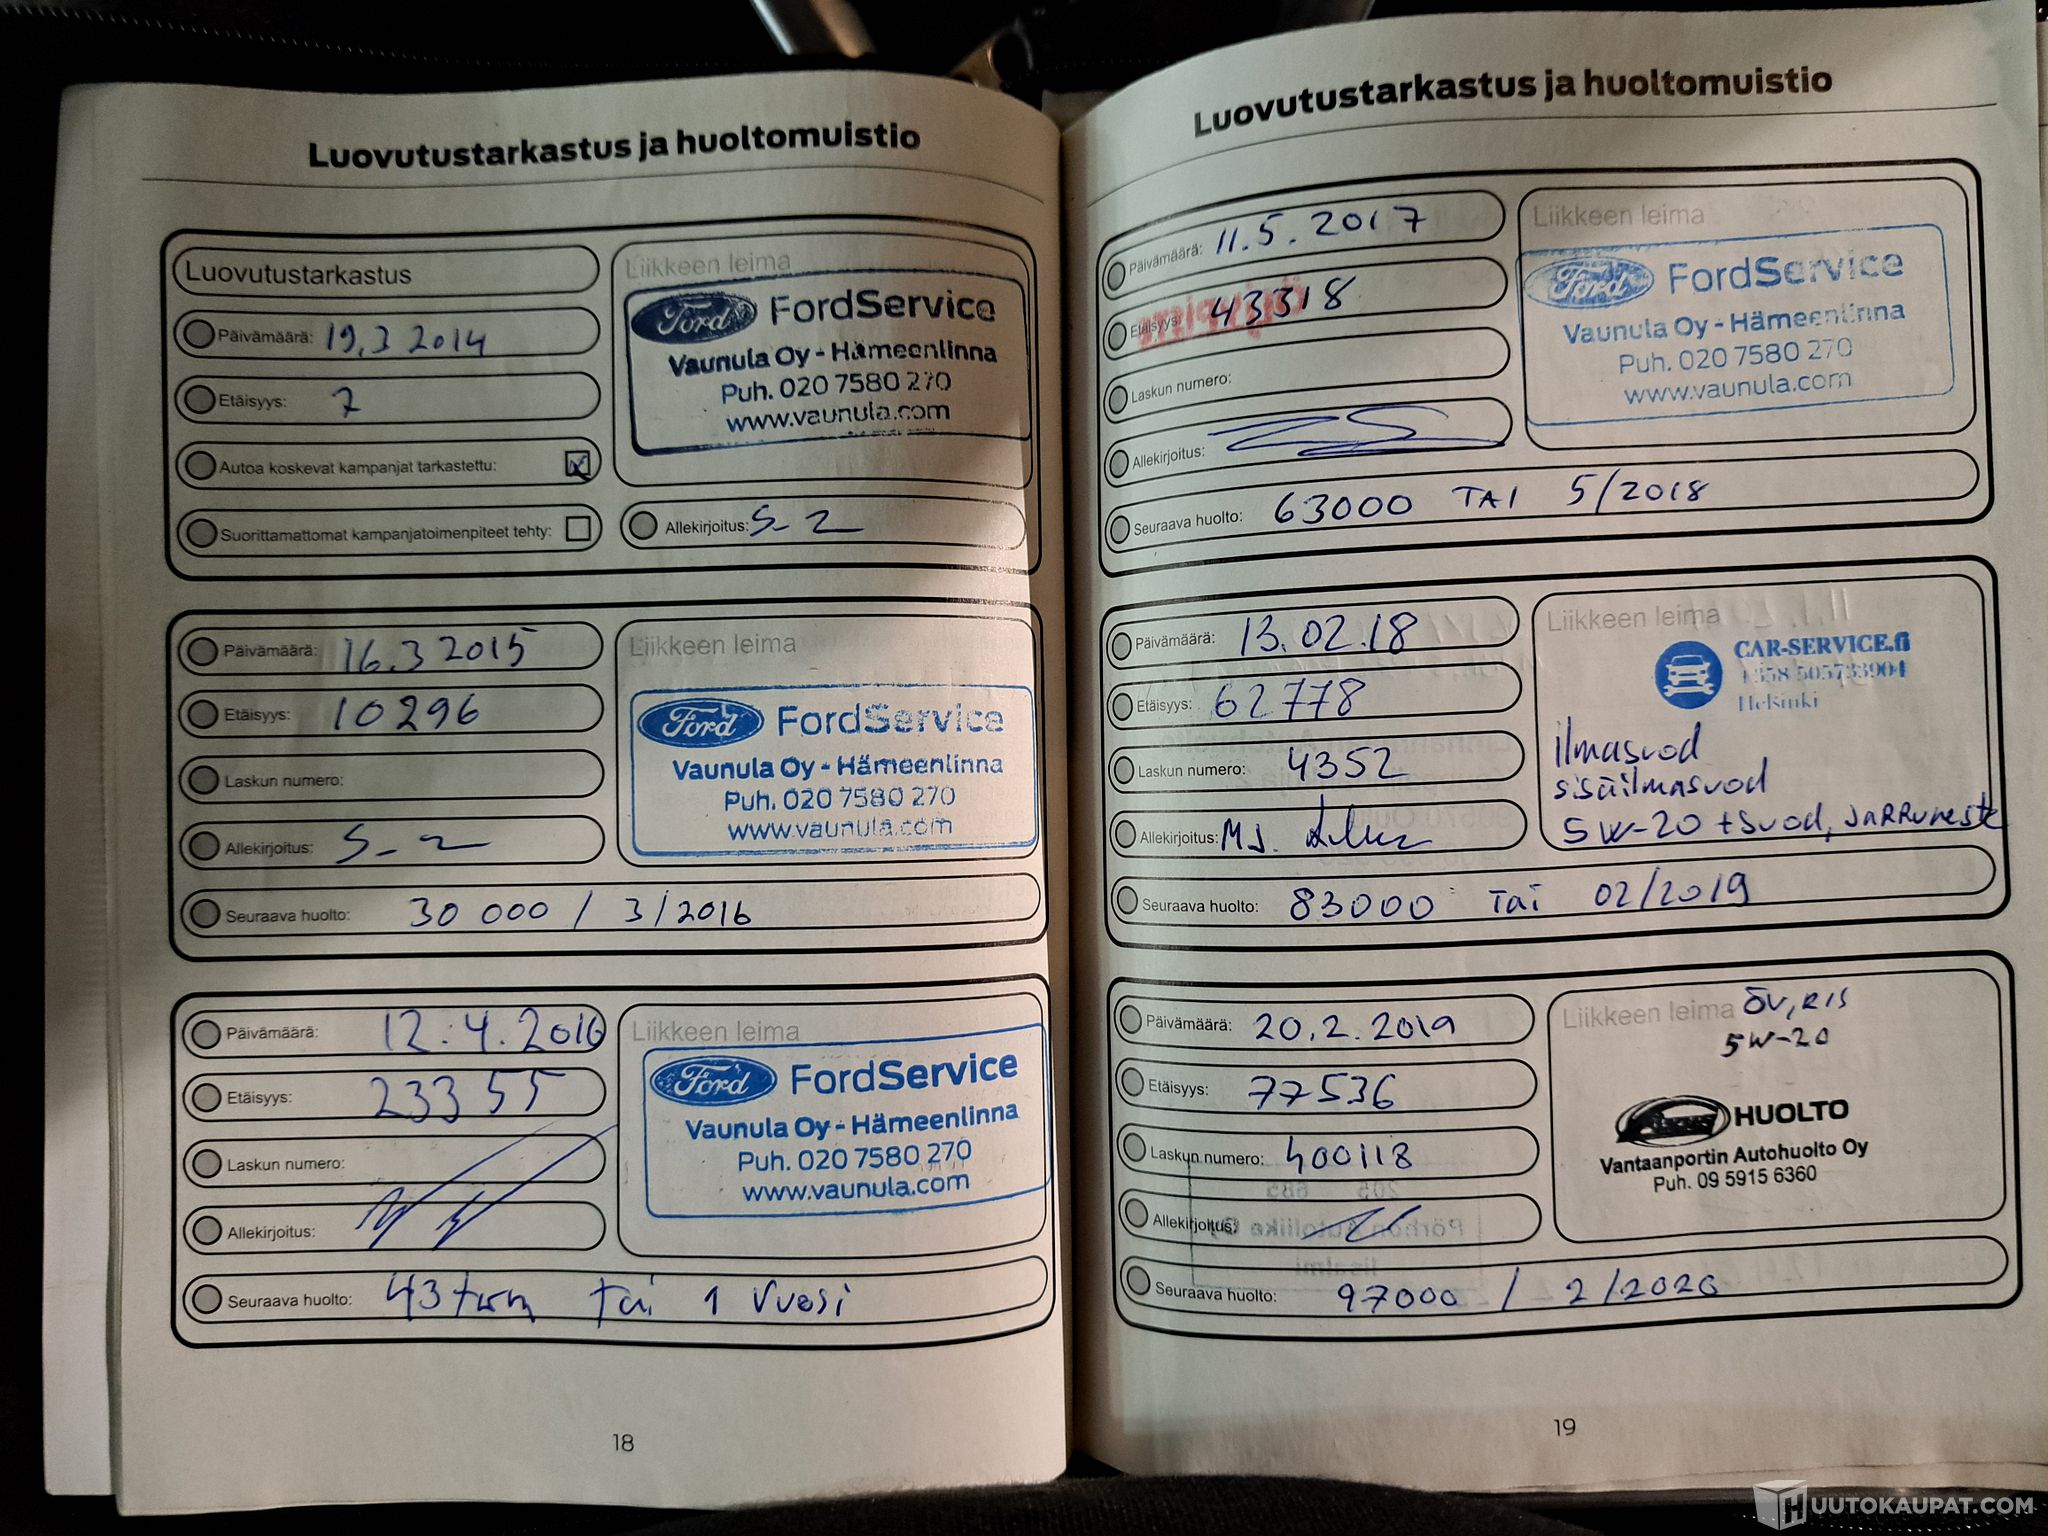 Luovutustarkastus ja huoltomuistio
Luovutustarkastus
Päivämäärä: 19.3 2014
Etäisyys: 7
Autoa koskevat kampanjat tarkastettu:
Suorittamattomat kampanjatoimenpiteet tehty:
Liikkeen leima
Ford FordService
Vaunula Oy - Hämeenlinna
Puh. 020 7580 270
www.vaunula.com
Allekirjoitus:
Päivämäärä: 16.3 2015
Etäisyys: 10296
Laskun numero:
Allekirjoitus:
Liikkeen leima
Ford FordService
Vaunula Oy - Hämeenlinna
Puh. 020 7580 270
www.vaunula.com
Seuraava huolto: 30 000 / 3/2016
Päivämäärä: 12.4.2016
Etäisyys: 23355
Laskun numero:
Allekirjoitus:
Liikkeen leima
Ford FordService
Vaunula Oy - Hämeenlinna
Puh. 020 7580 270
www.vaunula.com
Seuraava huolto: 43 tkm tai 1 vuosi
18
Luovutustarkastus ja huoltomuistio
Päivämäärä: 11.5.2017
Etäisyys: 43318
Laskun numero:
Allekirjoitus:
Liikkeen leima
Ford FordService
Vaunula Oy - Hämeenlinna
Puh. 020 7580 270
www.vaunula.com
Seuraava huolto: 63000 TAI 5/2018
Päivämäärä: 13.02.18
Etäisyys: 62778
Laskun numero: 4352
Allekirjoitus:
Liikkeen leima
CAR-SERVICE.fi
+358 505733904
Helsinki
ilmasuod
sisäilmasuod
5W-20 +suod, jarruneste
Seuraava huolto: 83000 tai 02/2019
Päivämäärä: 20.2.2019
Etäisyys: 77536
Laskun numero: 400118
Allekirjoitus:
Liikkeen leima ÖV, RIS
5W-20
HUOLTO
Vantaanportin Autohuolto Oy
Puh. 09 5915 6360
Seuraava huolto: 97000 / 2/2020
19
HUUTOKAUPAT.COM